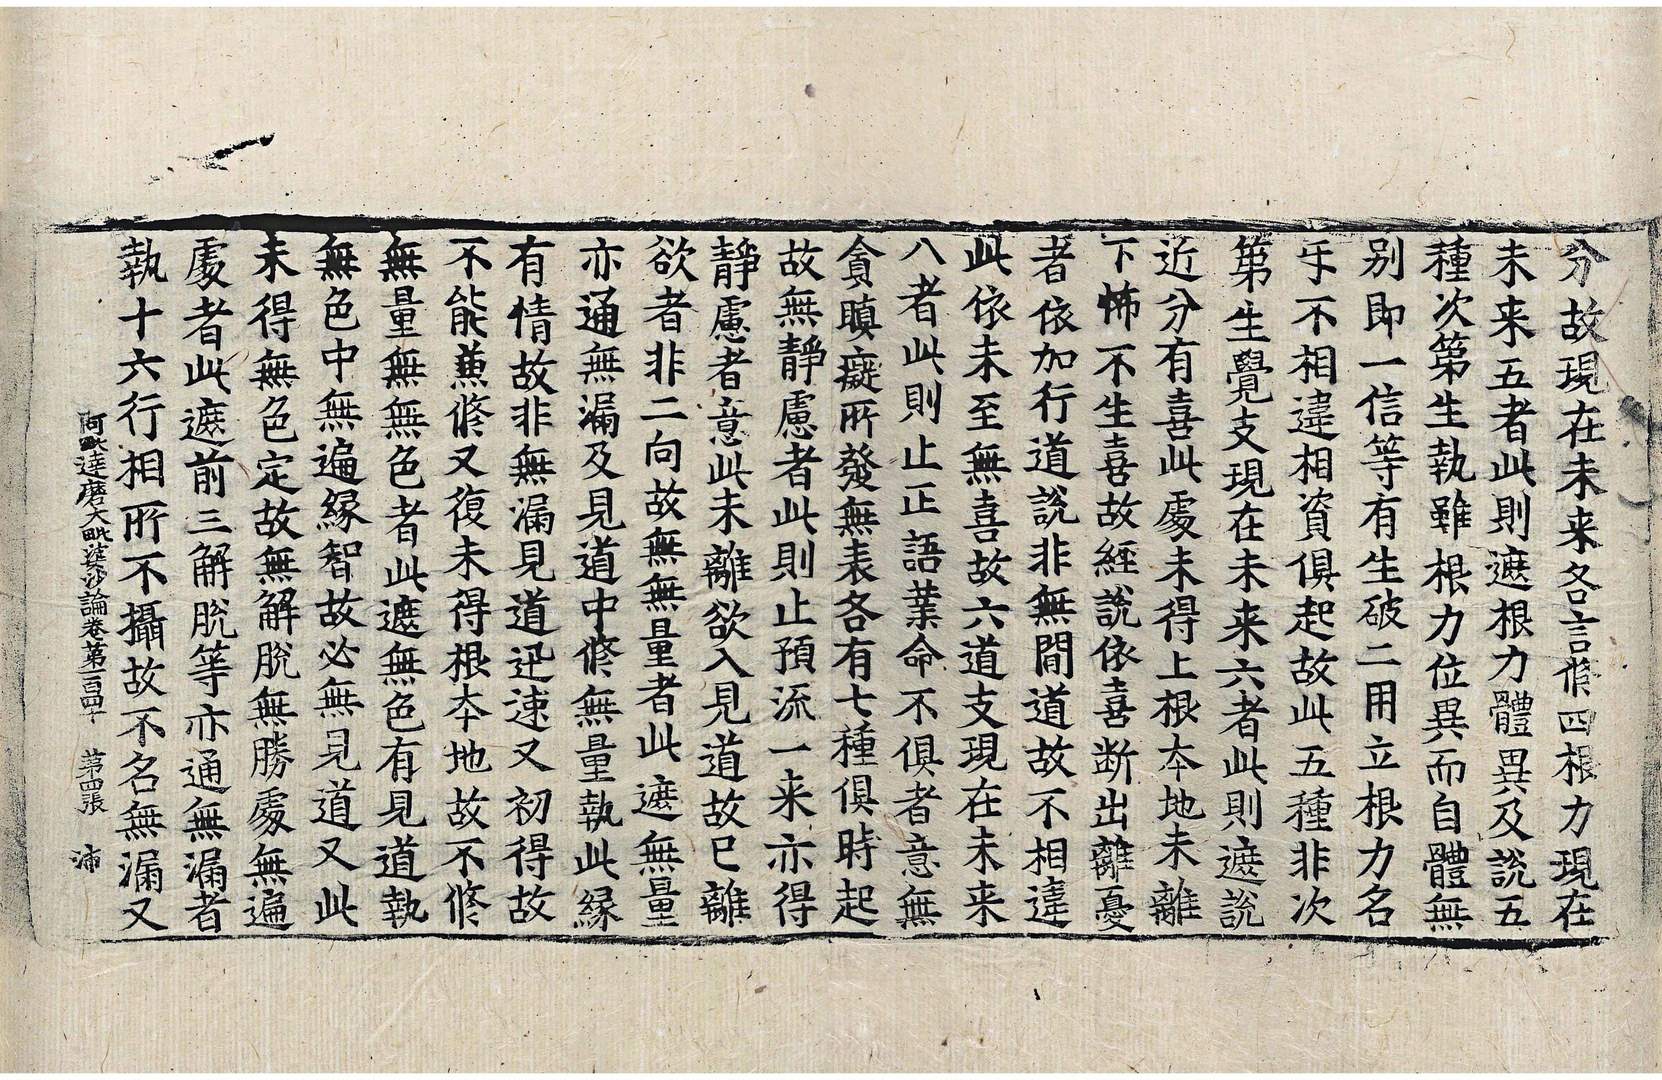 分故現在未来各言脩四根力現在
未来五者此則遮根力體異及說五
種次第生執雖根力位異而自體無
別即一信等有生破二用立根力名
乎不相違相資俱起故此五種非次
第生覺支現在未来六者此則遮說
近分有喜此處未得上根本地未離
下怖不生喜故經說依喜断出離憂
者依加行道說非無間道故不相違
此依未至無喜故六道支現在未来
八者此則止正語業命不俱者意無
貪瞋癡所發無表各有七種俱時起
故無靜慮者此則止預流一来亦得
靜慮者意此未離欲入見道故已離
欲者非二向故無無量者此遮無量
亦通無漏及見道中脩無量執此緣
有情故非無漏見道迅速又初得故
不能兼脩又復未得根本地故不脩
無量無無色者此遮無色有見道執
無色中無遍緣智故必無見道又此
未得無色定故無解脫無勝處無遍
處者此遮前三解脫等亦通無漏者
執十六行相所不攝故不名無漏又
阿毗達磨大毗婆沙論卷第一百四十 第四張 沛